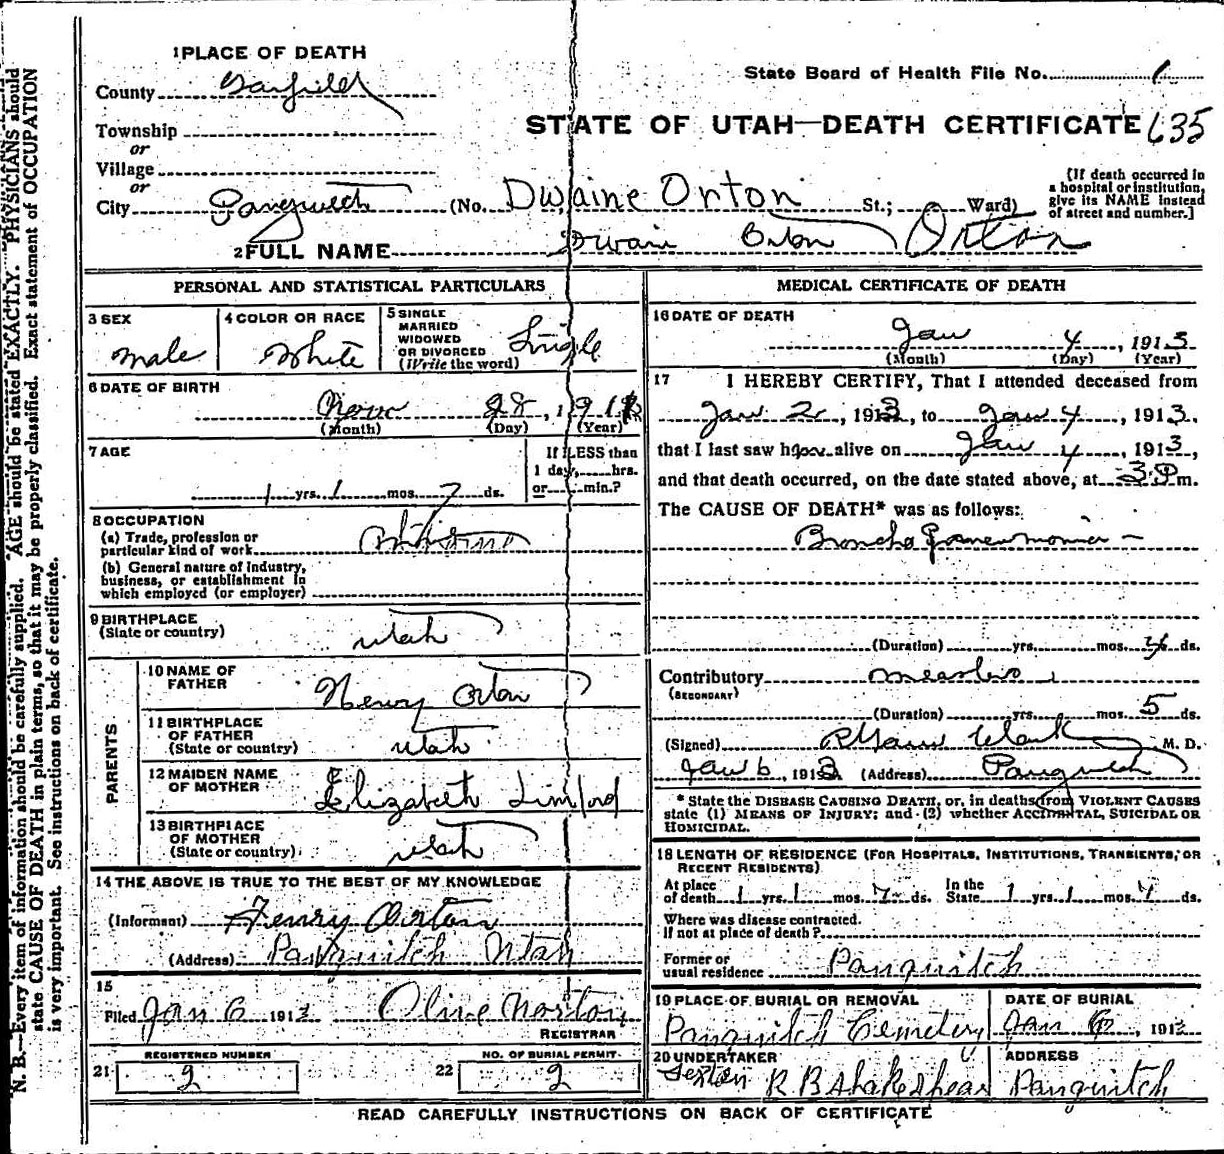 N. B.—Every item of information should be carefully supplied. AGE should be stated EXACTLY. PHYSICIANS should
state CAUSE OF DEATH in plain terms, so that it may be properly classified. Exact statement of OCCUPATION
is very important. See instructions on back of certificate.
1 PLACE OF DEATH
County Garfield
Township
or
Village
or
City Panguitch
State Board of Health File No. 6
STATE OF UTAH—DEATH CERTIFICATE 635
(No. Dwaine Orton St.; Ward)
[If death occurred in
a hospital or institution,
give its NAME instead
of street and number.]
2 FULL NAME Dwain Orton Orton
PERSONAL AND STATISTICAL PARTICULARS
3 SEX
Male
4 COLOR OR RACE
White
5 SINGLE
MARRIED
WIDOWED
OR DIVORCED
(Write the word)
Single
6 DATE OF BIRTH
Nov 28, 1911
(Month) (Day) (Year)
7 AGE
1 yrs. 1 mos. 7 ds.
If LESS than
1 day, hrs.
or min.?
8 OCCUPATION
(a) Trade, profession or
particular kind of work
(b) General nature of industry,
business, or establishment in
which employed (or employer)
9 BIRTHPLACE
(State or country)
Utah
PARENTS
10 NAME OF
FATHER
Henry Orton
11 BIRTHPLACE
OF FATHER
(State or country)
Utah
12 MAIDEN NAME
OF MOTHER
Elizabeth
13 BIRTHPLACE
OF MOTHER
(State or country)
Utah
14 THE ABOVE IS TRUE TO THE BEST OF MY KNOWLEDGE
(Informant) Henry Orton
(Address) Panguitch Utah
15
Filed Jan 6 1913 Olive Norton
REGISTRAR
REGISTERED NUMBER
21 2
NO. OF BURIAL PERMIT
22 2
MEDICAL CERTIFICATE OF DEATH
16 DATE OF DEATH
Jan 4, 1913
(Month) (Day) (Year)
17 I HEREBY CERTIFY, That I attended deceased from
Jan 2, 1913, to Jan 4, 1913,
that I last saw him alive on Jan 4, 1913,
and that death occurred, on the date stated above, at 3 P m.
The CAUSE OF DEATH* was as follows:
Broncho Pneumonia
(Duration) yrs. mos. 4 ds.
Contributory Measles
(SECONDARY)
(Duration) yrs. mos. 5 ds.
(Signed) Clark M. D.
Jan 6, 1913 (Address) Panguitch
* State the DISEASE CAUSING DEATH, or, in deaths from VIOLENT CAUSES
state (1) MEANS OF INJURY; and (2) whether ACCIDENTAL, SUICIDAL OR
HOMICIDAL.
18 LENGTH OF RESIDENCE (FOR HOSPITALS, INSTITUTIONS, TRANSIENTS, OR
RECENT RESIDENTS)
At place
of death 1 yrs. 1 mos. 7 ds.
In the
State 1 yrs. 1 mos. 7 ds.
Where was disease contracted.
If not at place of death?
Former or
usual residence Panguitch
19 PLACE OF BURIAL OR REMOVAL
Panguitch Cemetery
DATE OF BURIAL
Jan 6, 1913
20 UNDERTAKER
Sexton R B Shakespear
ADDRESS
Panguitch
READ CAREFULLY INSTRUCTIONS ON BACK OF CERTIFICATE